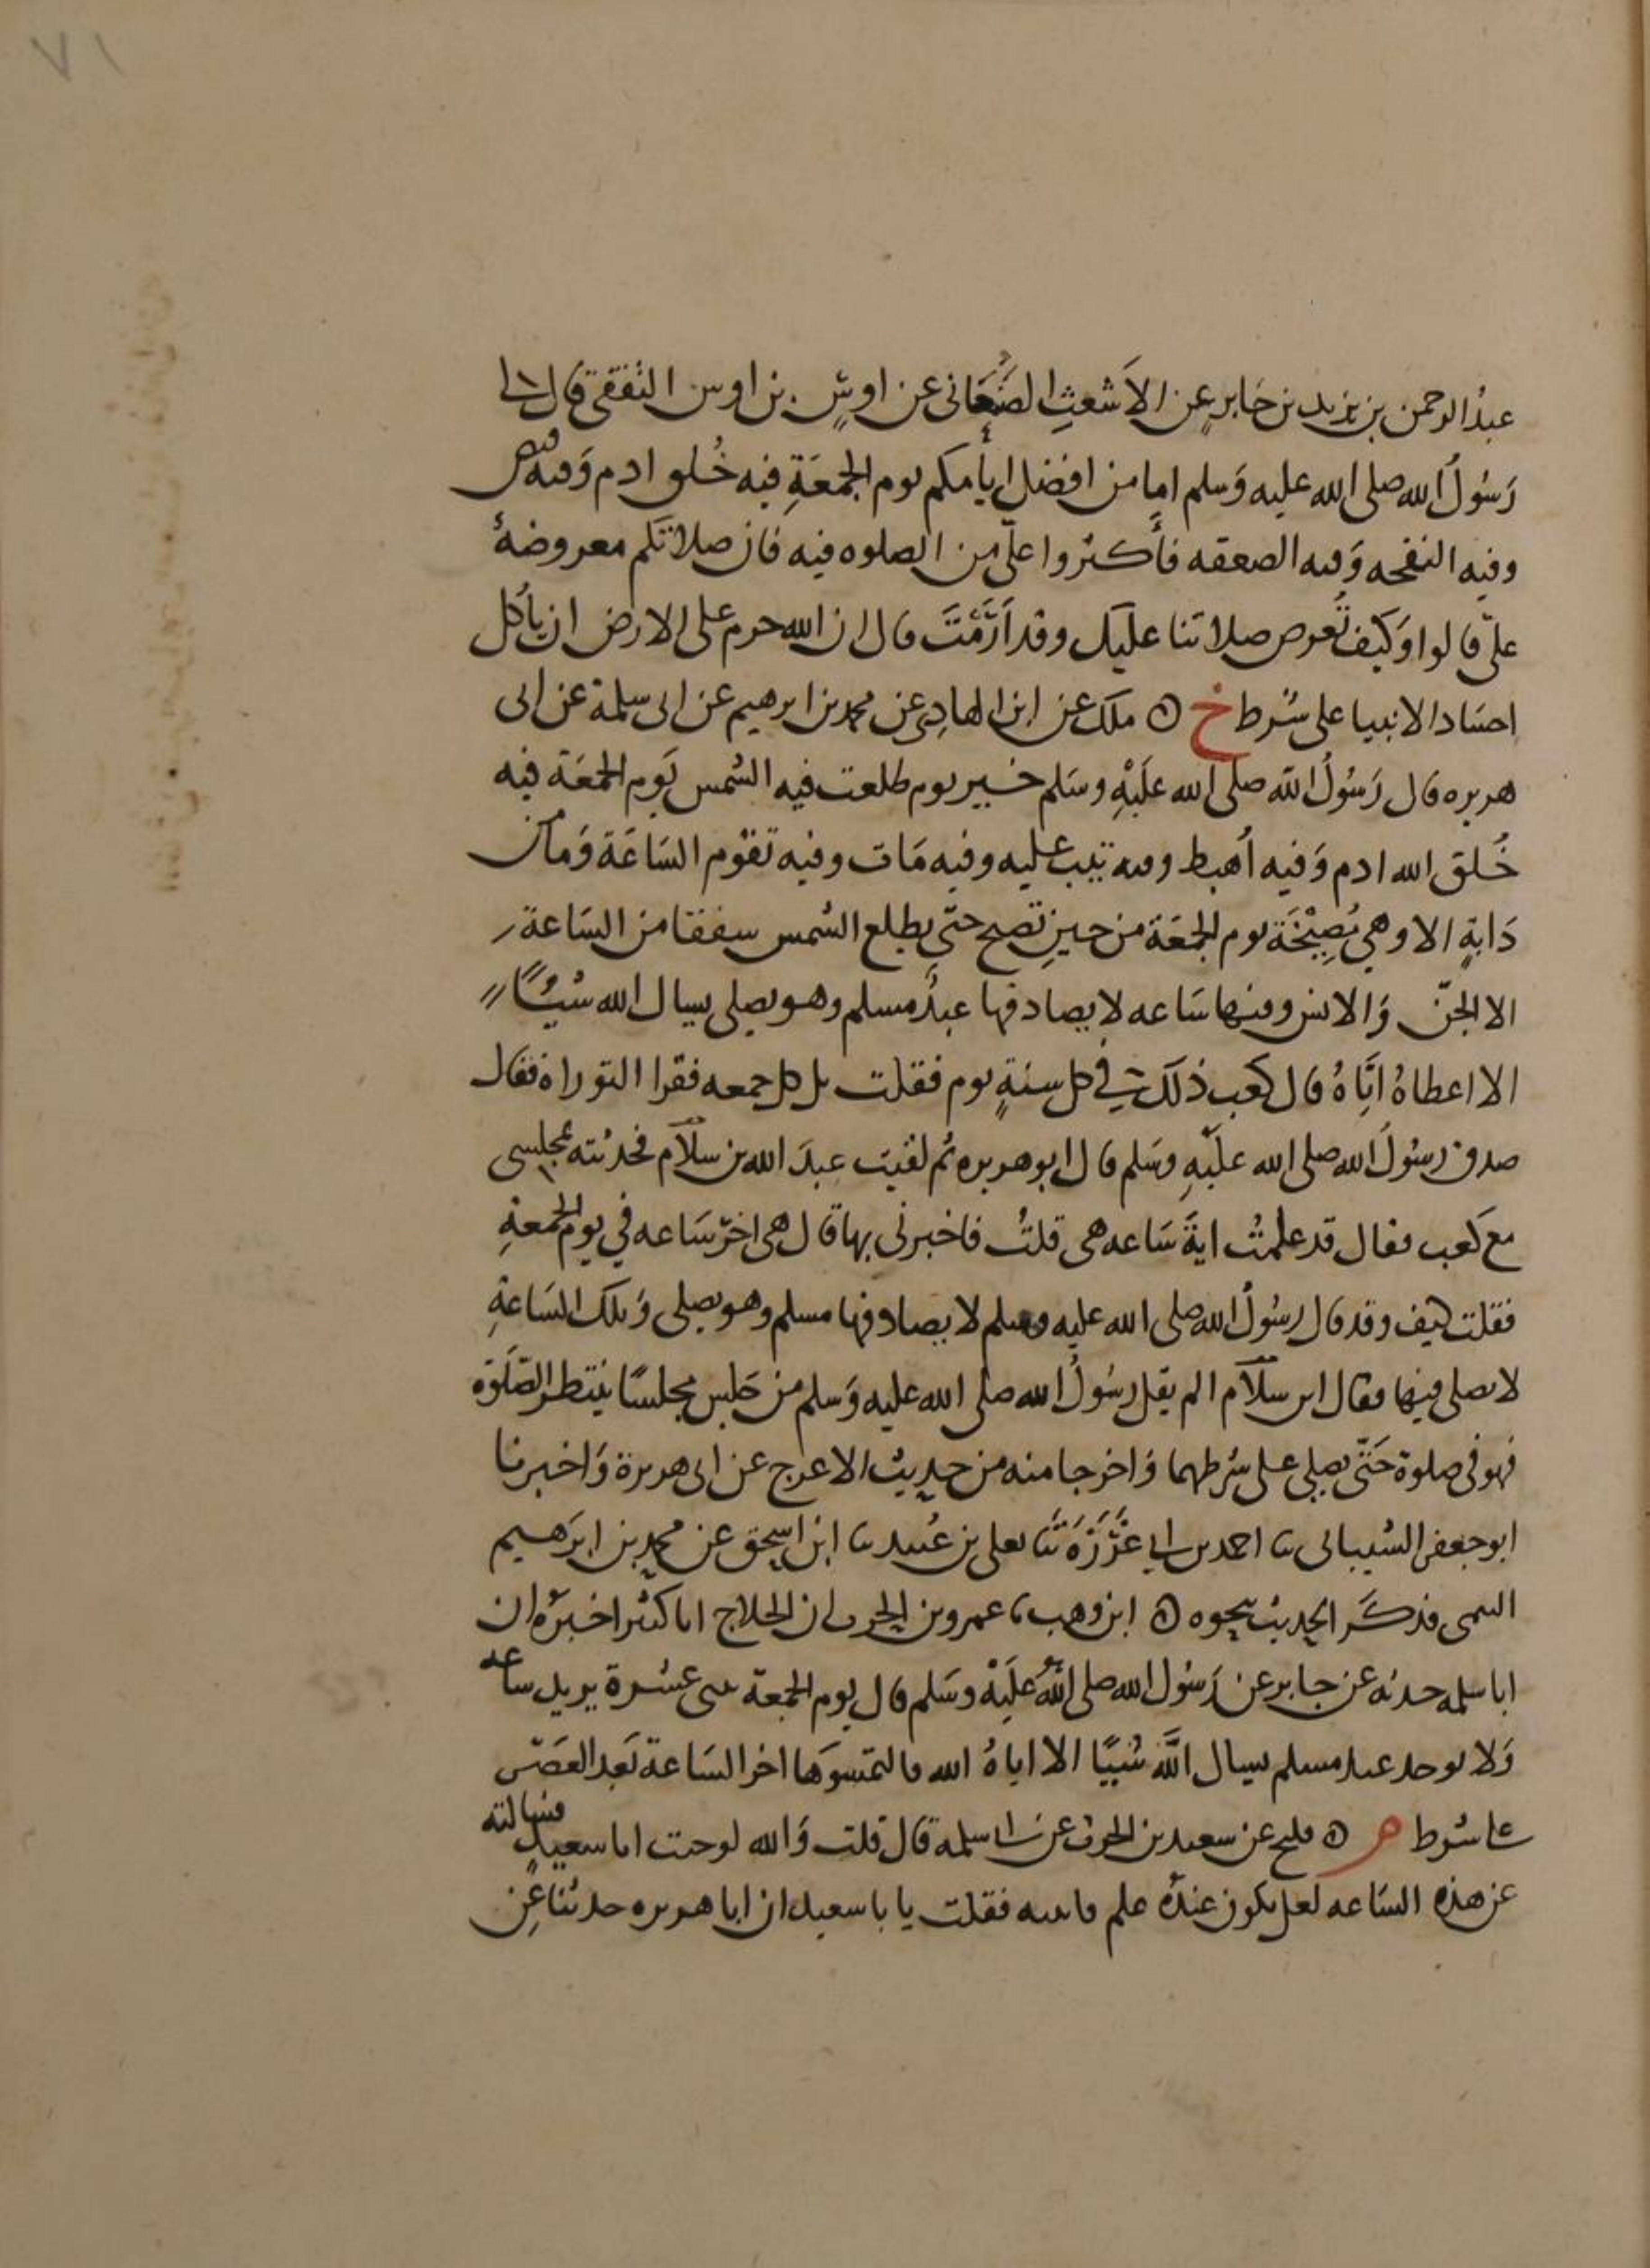 ٧١
عبدُ الرحمن بن يزيد بن جَابرٍ عن الاَشعثِ الصَّنعَاني عن اوسٍ بن اوس الثقفي قال لي
رَسُولُ الله صلى الله عليه وَسلم ان من افضل ايامكم يوم الجمعَةِ فيه خُلق ادم وَفيه قبض
وفيه النفخه وَفيه الصعقه فأكثروا عليّ من الصلوه فيه فان صلاتكم معروضةٌ
عليّ قالوا وَكيف تُعرض صلاتنا عليك وقد اَرَمْتَ قال ان الله حرم على الارض ان يأكل
اجسَاد الانبيا على شرط خ ۞ ملك عن ابن الهادِ عن محمد بن ابرهيم عن ابي سلمة عن ابي
هريره قال رَسُولُ الله صلى الله عليْهِ وسَلم خير يوم طلعت فيه الشمس يَوم الجمعَة فيه
خُلق الله ادم وَفيه اُهبط وفيه تيب عليه وفيه مَات وفيه تقوم السَاعَة وَما من
دَابةٍ الا وهي مُصِيْخَة يوم الجمعَة من حينِ تصبح حتى يطلع الشمس شفقا من السَاعة
الا الجنّ وَالانس وفيها سَاعه لا يصادفها عبدٌ مسلم وهو يصلى يسال الله شيًا
الا اعطاهُ ايَّاهُ قال كعب ذلك في كل سنةٍ يوم فقلت بل كل جمعه فقرا التوراة فقال
صدق رسُولُ الله صلى الله عليْهِ وسَلم قال ابو هريره ثم لقيت عبدَ الله بن سلاَم فحدثته بمجلسى
مع كعب فقال قد علمتُ ايةَ سَاعه هى قلتُ فاخبرنى بها قال هى اخرُ سَاعه في يوم الجمعةِ
فقلت كيف وقد قال رسُولُ الله صلى الله عليه وسلم لا يصادفها مسلم وهو يصلى وَتلك السَاعةِ
لا يصلى فيها فقال ابن سلاَم الم يقل رسُولُ الله صلى الله عليه وَسلم من جَلس مجلسًا ينتظر الصَّلوَة
فهو فى صلوة حَتّى يصلى على شرطهما وَاخرجا منه من حديث الاعرج عن ابى هريرة وَاخبرنا
ابو جعفر الشيبانى ثنا احمد بن ابي غَرَزَة ثنا يعلى بن عُبيد ثنا ابن اسحق عن محمد بن ابرَهيم
التيمى فذكَر الحديث بنحوه ۞ ابن وهب عمرو بن الحرث ان الجلاح ابا كثير اخبرَه ان
ابا سلمه حدثه عن جابر عن رَسُول الله صلى اللهُ عليْه وسَلم قال يوم الجمعة ثنتى عشرة يريد ساعه
وَلا يوجد عبد مسلم يسال اللَّه شيًا الا اتاهُ الله فالتمسوَها اخر السَاعة بَعد العَصر
على شرط م ۞ فليح عن سعيد بن الحرث عن ابي سلمه قال قلت وَالله لو جئت ابا سعيدٍ فسالته
عن هذه السَاعه لعل يكون عندَه علم فاتيته فقلت يا با سعيد ان ابا هريره حدثنا عَن